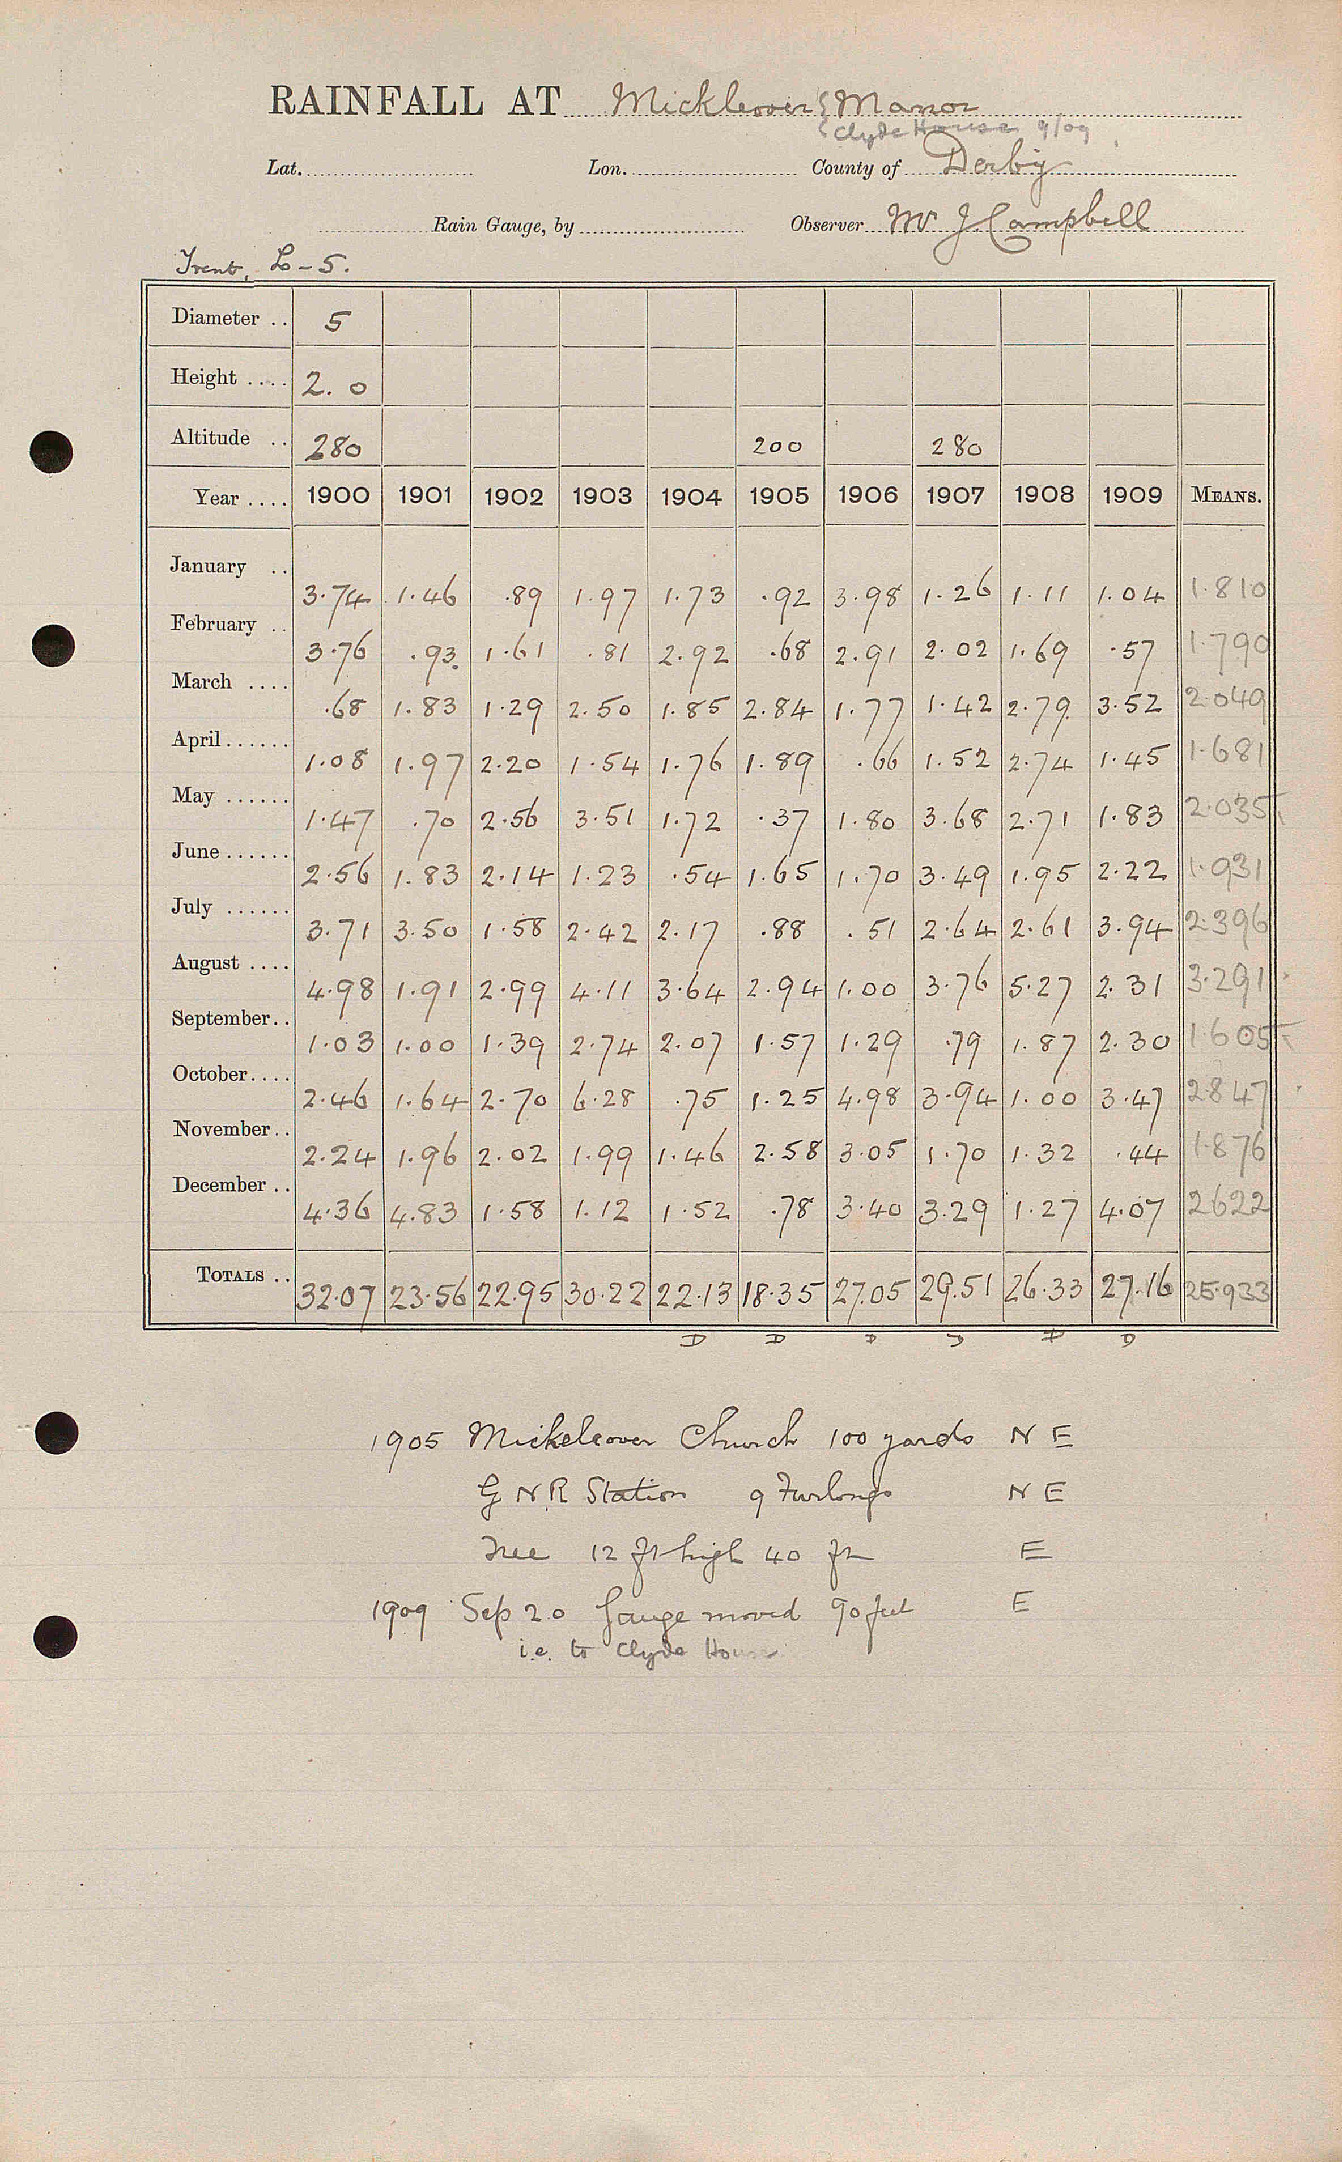 RAINFALL AT Mickleover { Manor
{ Clyde House 9/09
Lat. Lon. County of Derby
Rain Gauge, by Observer Mr J Campbell
Trent, L-5.
Diameter .. 5
Height .... 2. 0
Altitude .. 280 200 280
Year .... 1900 1901 1902 1903 1904 1905 1906 1907 1908 1909 MEANS.
January .. 3.74 1.46 .89 1.97 1.73 .92 3.98 1.26 1.11 1.04 1.810
February .. 3.76 .93 1.61 .81 2.92 .68 2.91 2.02 1.69 .57 1.790
March .... .68 1.83 1.29 2.50 1.85 2.84 1.77 1.42 2.79 3.52 2.049
April ...... 1.08 1.97 2.20 1.54 1.76 1.89 .66 1.52 2.74 1.45 1.681
May ...... 1.47 .70 2.56 3.51 1.72 .37 1.80 3.68 2.71 1.83 2.035
June ...... 2.56 1.83 2.14 1.23 .54 1.65 1.70 3.49 1.95 2.22 1.931
July ...... 3.71 3.50 1.58 2.42 2.17 .88 .51 2.64 2.61 3.94 2.396
August .... 4.98 1.91 2.99 4.11 3.64 2.94 1.00 3.76 5.27 2.31 3.291
September.. 1.03 1.00 1.39 2.74 2.07 1.57 1.29 .79 1.87 2.30 1.605
October.... 2.46 1.64 2.70 6.28 .75 1.25 4.98 3.94 1.00 3.47 2.847
November.. 2.24 1.96 2.02 1.99 1.46 2.58 3.05 1.70 1.32 .44 1.876
December .. 4.36 4.83 1.58 1.12 1.52 .78 3.40 3.29 1.27 4.07 2.622
TOTALS .. 32.07 23.56 22.95 30.22 22.13 18.35 27.05 29.51 26.33 27.16 25.933
D D D D D D
1905 Mickeleover Church 100 yards N E
G N R Station 9 Furlongs N E
Tree 12 ft high 40 ft E
1909 Sep 20 Gauge moved 90 feet E
i.e. to Clyde House